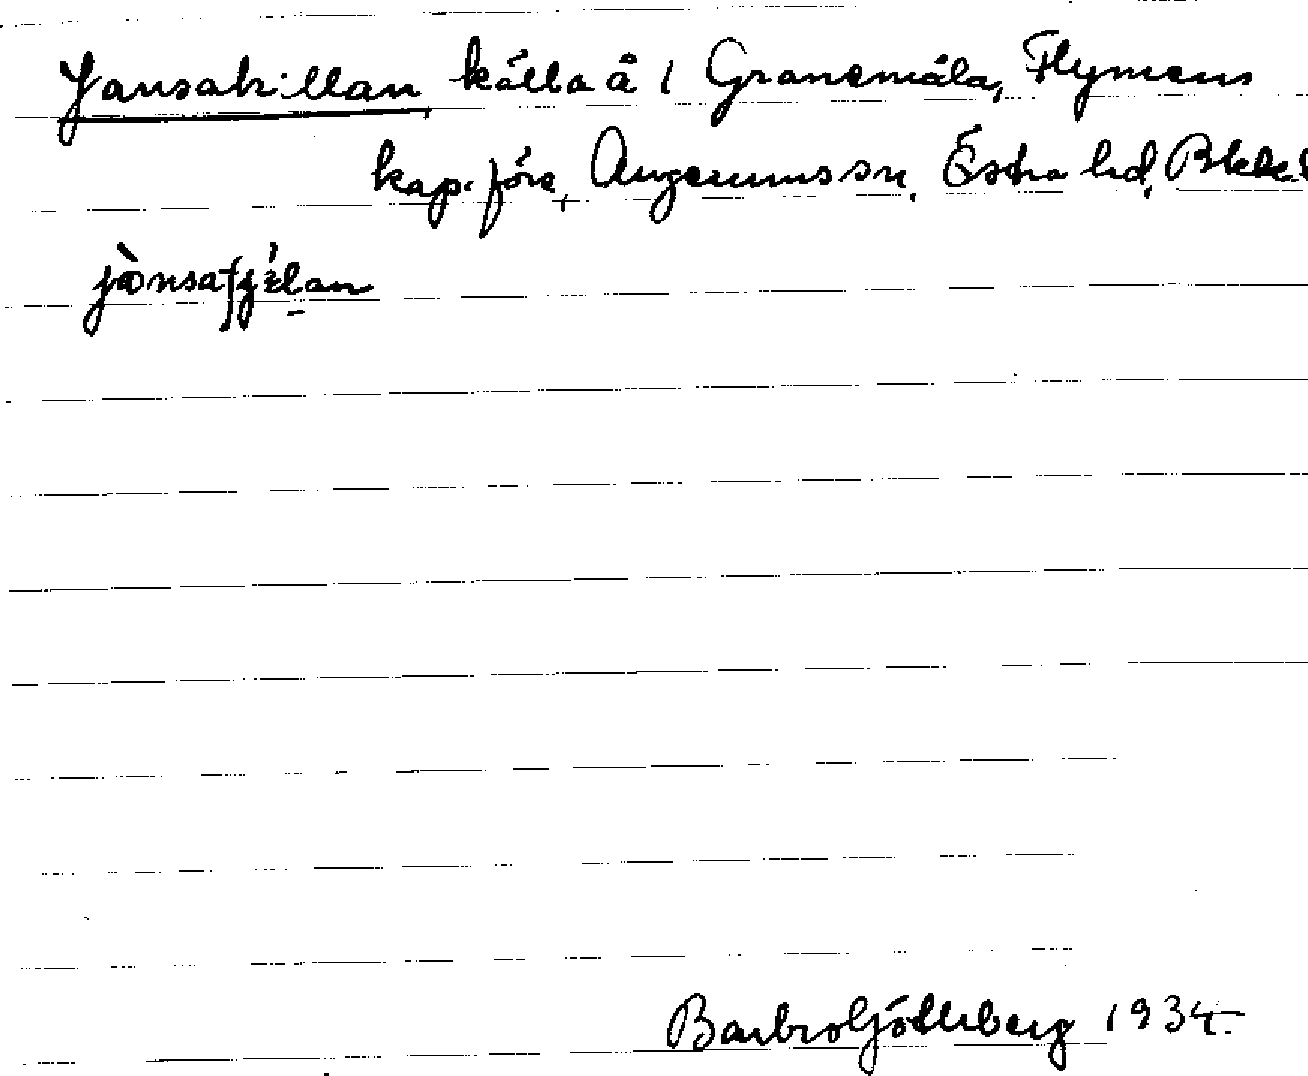 Jansakillan, källa å i Granemåla, Flymens
kap. förs., Augerums sn, Östra hd, Blek.
jònsaʃʒélan
Barbro Götherberg 1934.